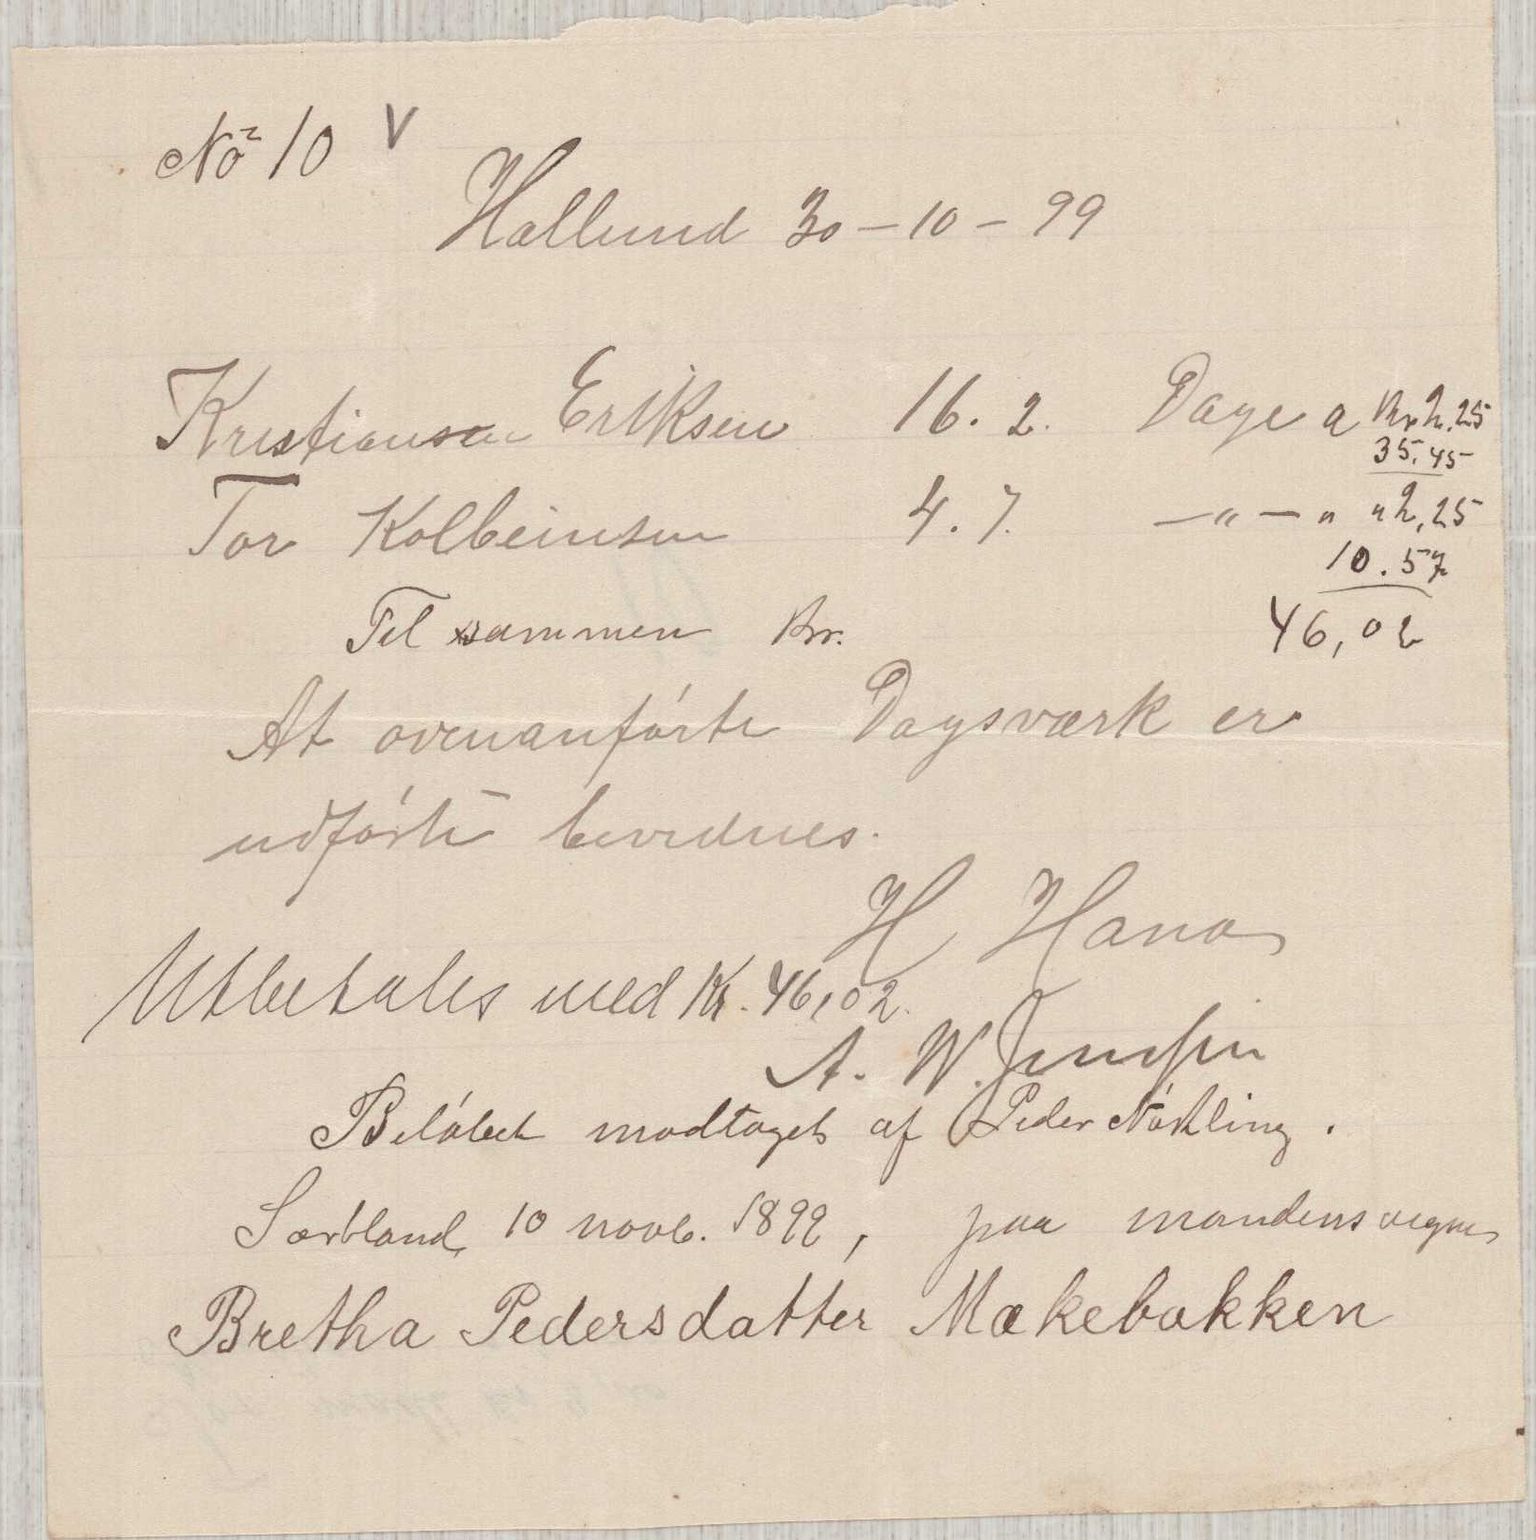 No 10 V
Hallund 30 - 10 - 99
Kristiansen Eriksen 16. 2. Dage a Kr 2.25
35.45
Tor Kolbeinsen 4. 7. — " — " " 2,25
10.57
Til sammen Kr. 46,02
At ovenanførte Dagsværk er
udførte bevidnes.
H Hana
Utbetales med Kr. 46,02.
A. W. Jenssen
Beløbet modtaget af Peder
10 novb. 1899, paa mandens vegne
Bretha Pedersdatter Mækebakken